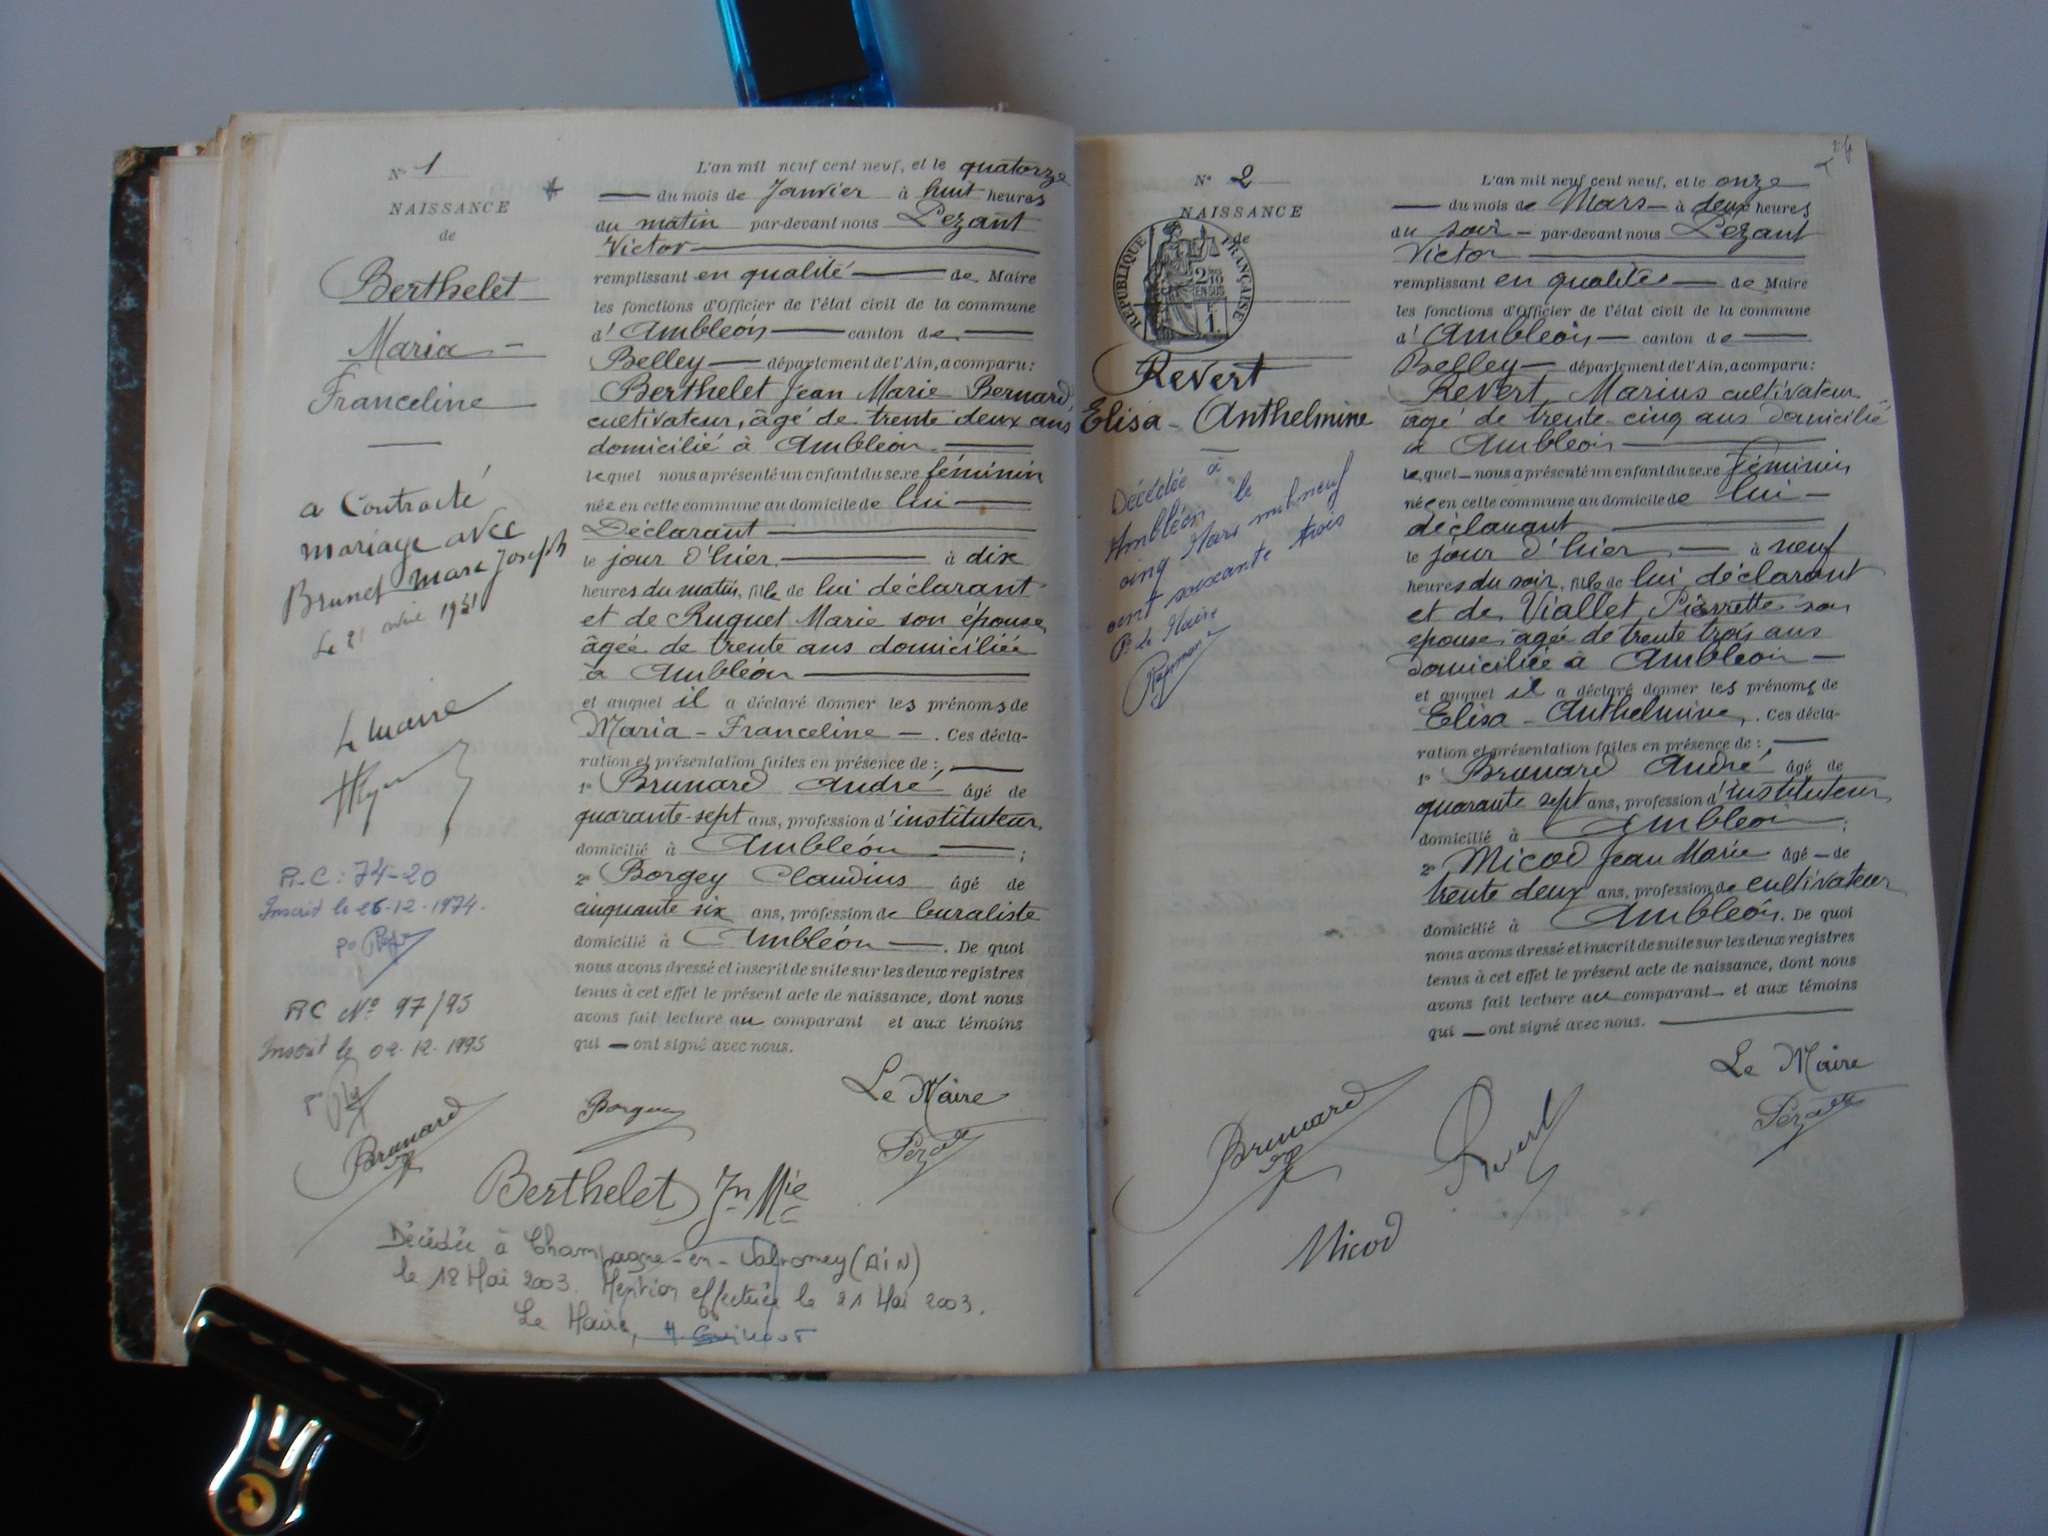 N° 1
NAISSANCE
de
Berthelet
Maria
Franceline
a Contracté
mariage avec
Brunet Marc Joseph
Le 21 1951
Le Maire
R.C : 74-20
Inscrit le 26-12-1974.
P°
RC N° 97/95
Inscrit le 02.12.1995
P°
L'an mil neuf cent neuf, et le quatorze
du mois de Janvier à huit heures
du matin par-devant nous Pezant
Victor
remplissant en qualité de Maire
les fonctions d'Officier de l'état civil de la commune
d'Ambléon canton de
Belley département de l'Ain, a comparu :
Berthelet Jean Marie Bernard,
cultivateur, âgé de trente deux ans
domicilié à Ambléon
lequel nous a présenté un enfant du sexe féminin
née en cette commune au domicile de lui
Déclarant
le jour d'hier à dix
heures du matin, fille de lui déclarant
et de Ruguet Marie son épouse,
âgée de trente ans domiciliée
à Ambléon
et auquel il a déclaré donner les prénoms de
Maria - Franceline. Ces décla-
ration et présentation faites en présence de :
1° Brunard André, âgé de
quarante-sept ans, profession d'instituteur,
domicilié à Ambléon ;
2° Borgey Claudius âgé de
cinquante six ans, profession de buraliste
domicilié à Ambléon. De quoi
nous avons dressé et inscrit de suite sur les deux registres
tenus à cet effet le présent acte de naissance, dont nous
avons fait lecture au comparant et aux témoins
qui ont signé avec nous.
Le Maire
Brunard Borgey Pezant
Berthelet Jn Mie
Décédée à Champagne-en-Valromey (AIN)
le 18 Mai 2003. Mention effectuée le 21 Mai 2003.
Le Maire,
N° 2
NAISSANCE
de
RÉPUBLIQUE FRANÇAISE
2/10 EN SUS
1
Revert
Elisa - Anthelmine
Décédée à
Ambléon le
cinq Mars mil neuf
cent soixante trois
P. le Maire
L'an mil neuf cent neuf, et le onze
du mois de Mars à deux heures
du soir par-devant nous Pezant
Victor
remplissant en qualité de Maire
les fonctions d'Officier de l'état civil de la commune
d'Ambléon canton de
Belley département de l'Ain, a comparu :
Revert Marius cultivateur
âgé de trente-cinq ans domicilié
à Ambléon
lequel nous a présenté un enfant du sexe féminin
née en cette commune au domicile de lui
déclarant
le jour d'hier à neuf
heures du soir, fille de lui déclarant
et de Viallet Pierrette son
épouse, âgée de trente trois ans
domiciliée à Ambléon
et auquel il a déclaré donner les prénoms de
Elisa - Anthelmine. Ces décla-
ration et présentation faites en présence de :
1° Brunard André âgé de
quarante sept ans, profession d'instituteur,
domicilié à Ambléon ;
2° Micod Jean Marie âgé de
trente deux ans, profession de cultivateur
domicilié à Ambléon. De quoi
nous avons dressé et inscrit de suite sur les deux registres
tenus à cet effet le présent acte de naissance, dont nous
avons fait lecture au comparant et aux témoins
qui ont signé avec nous.
Le Maire
Brunard Revert Pezant
Micod